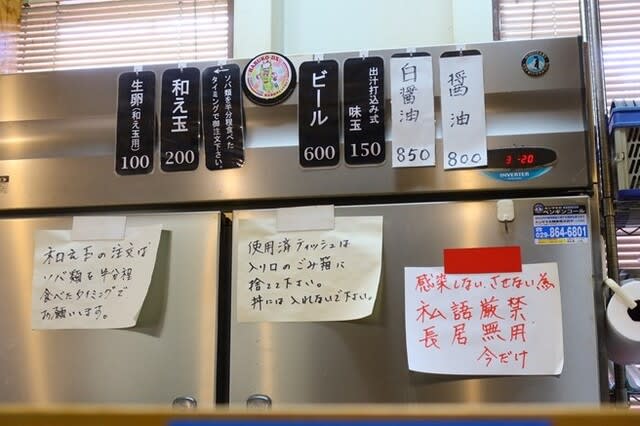 生卵(和え玉用)
100
和え玉
200
←
ソバ類を半分程食べた
タイミングで御注文下さい。
ビール
600
出汁打込み式
味玉
150
白醤油
850
醤油
800
3 -20
INVERTER
ペンギンコール
029-864-6801
和え玉の注文は
ソバ類を半分程
食べたタイミングで
お願いします。
使用済ティッシュは
入り口のごみ箱に
捨てて下さい。
丼には入れないで下さい。
感染しない、させない為
私語厳禁
長居無用
今だけ